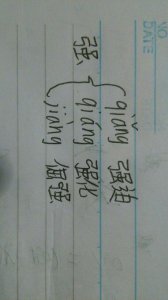 NO
DATE
强
qiǎng 强迫
qiáng 强化
jiàng 倔强